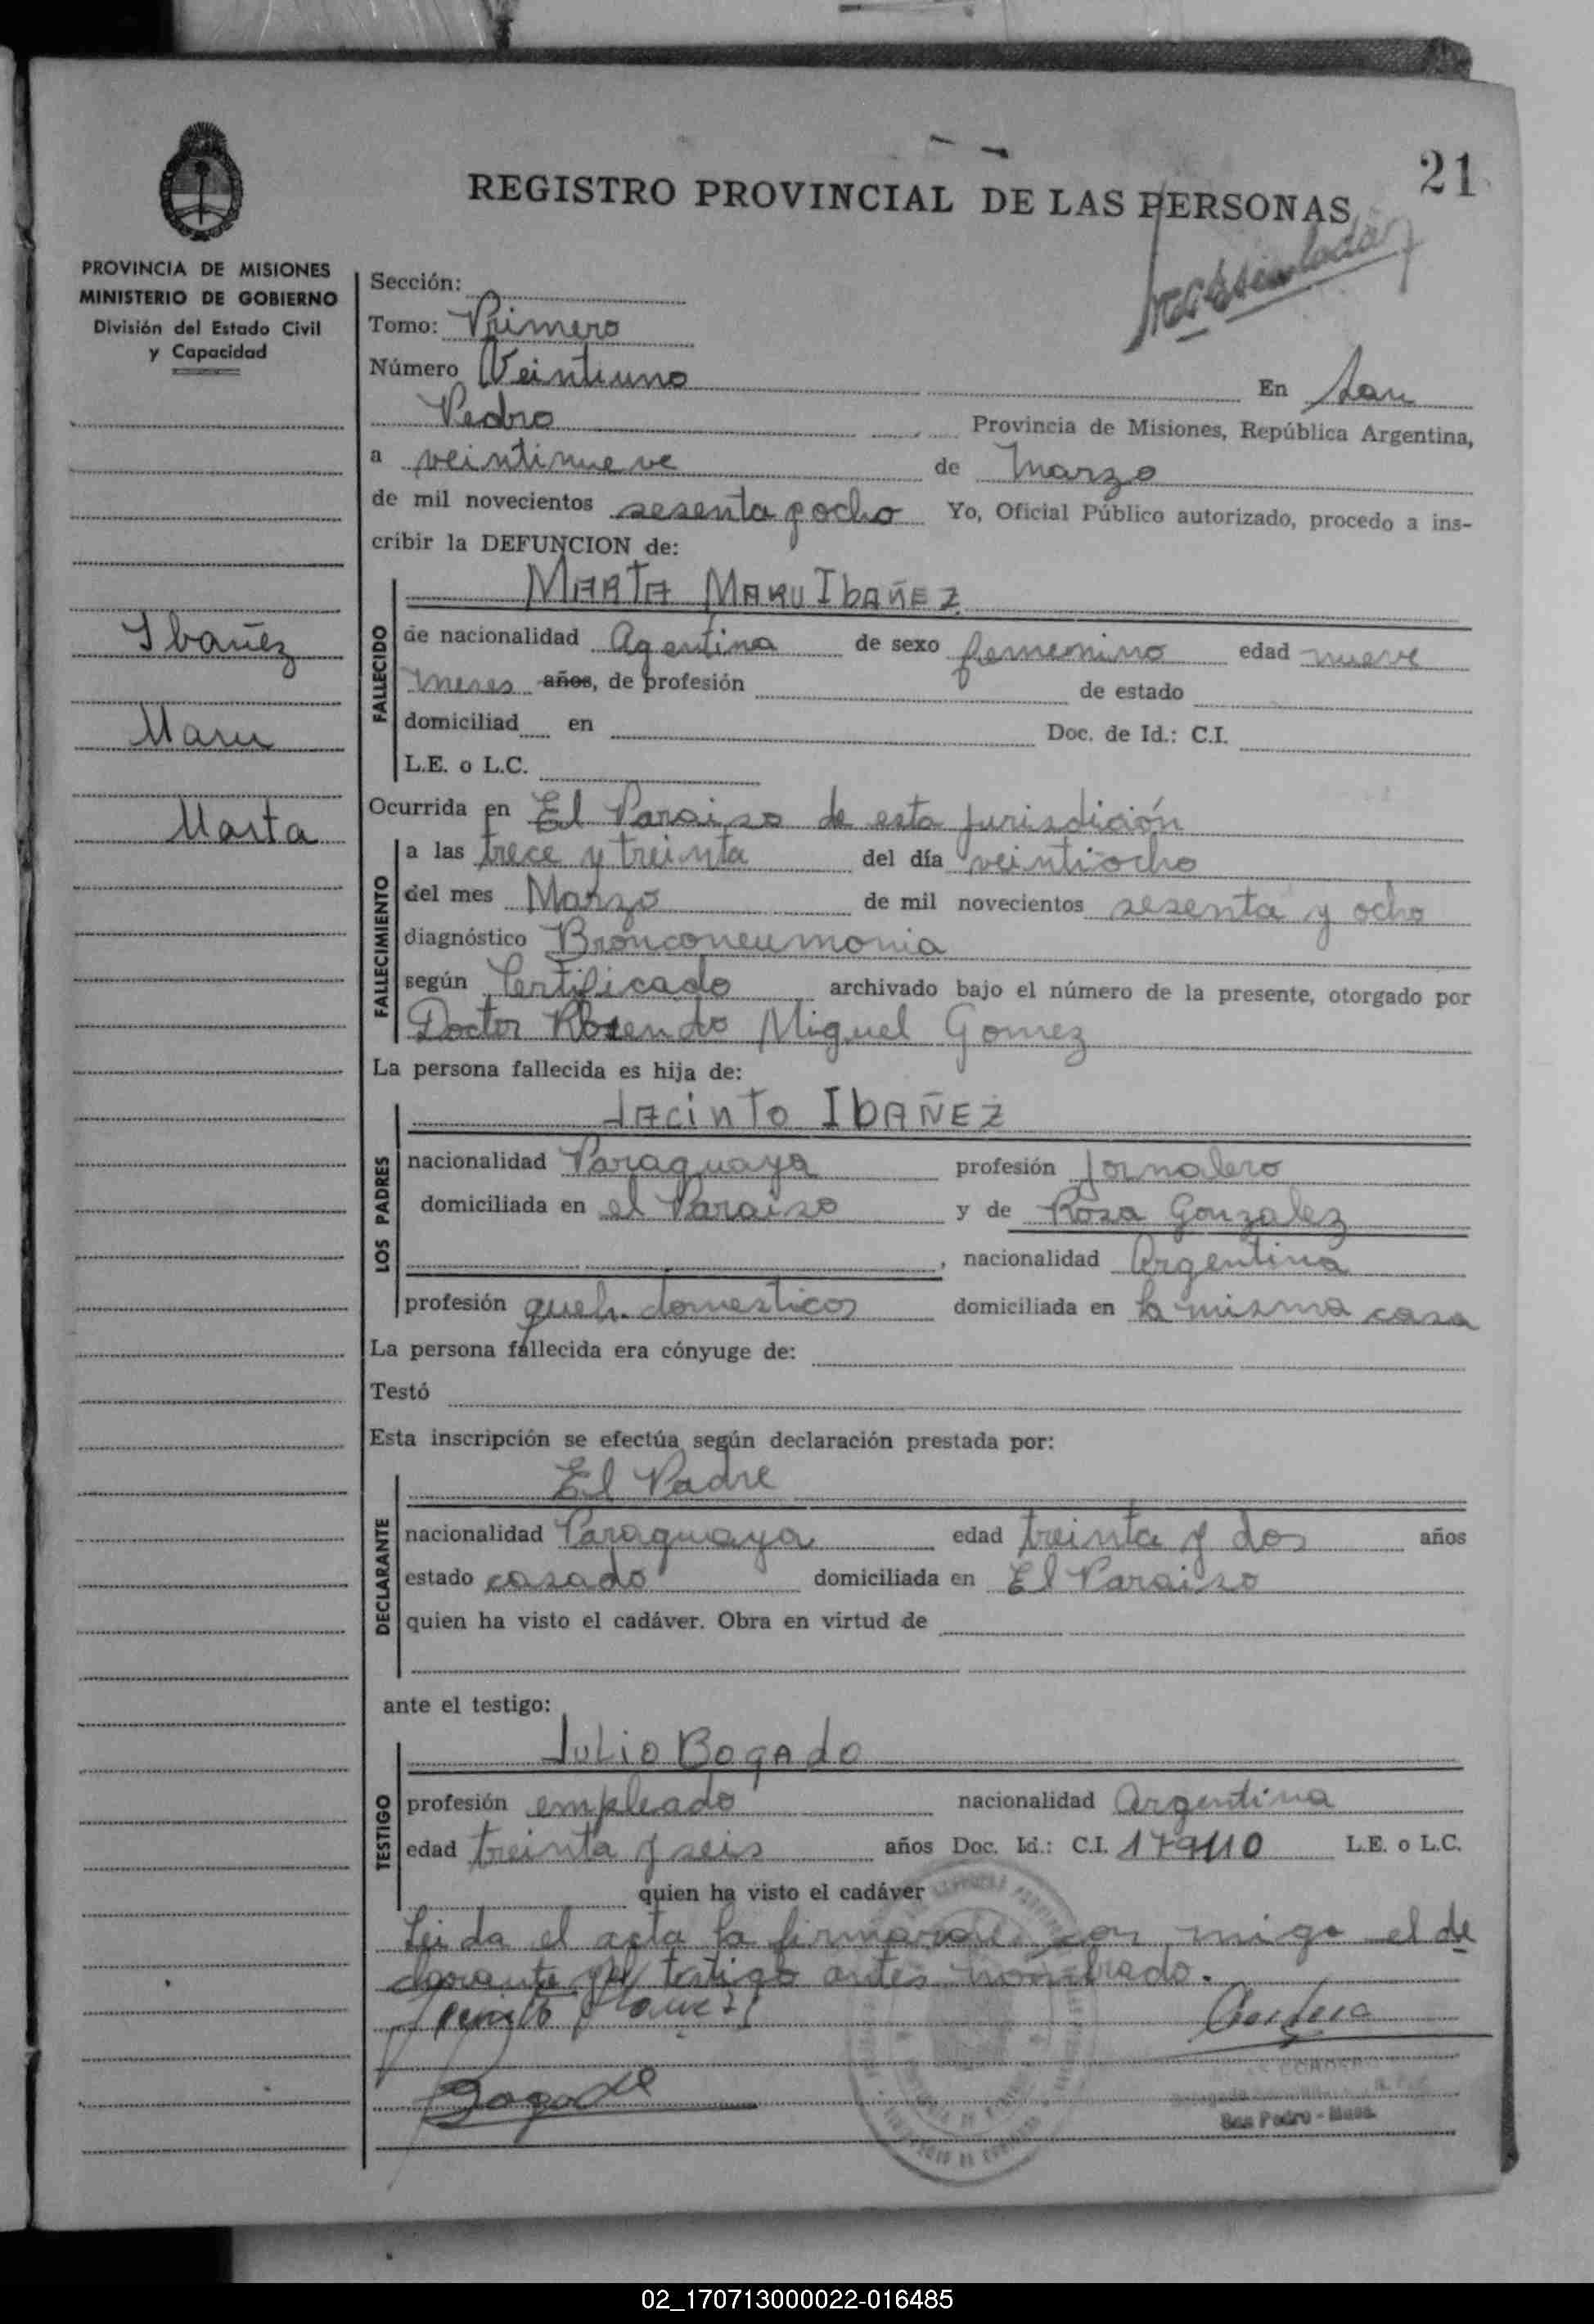 21
REGISTRO PROVINCIAL DE LAS PERSONAS
PROVINCIA DE MISIONES
MINISTERIO DE GOBIERNO
División del Estado Civil
y Capacidad
Sección:
Tomo: Primero
Número Veintiuno En San
Pedro Provincia de Misiones, República Argentina,
a veintinueve de Marzo
de mil novecientos sesenta y ocho Yo, Oficial Público autorizado, procedo a ins-
cribir la DEFUNCION de:
Ibañez
Maru
Marta
FALLECIDO
MARTA MARU IbAÑEZ
de nacionalidad Agentina de sexo femenino edad nueve
meses años, de profesión de estado
domiciliad en Doc. de Id.: C.I.
L.E. o L.C.
Ocurrida en El Paraiso de esta jurisdición
FALLECIMIENTO
a las trece y treinta del día veintiocho
del mes Marzo de mil novecientos sesenta y ocho
diagnóstico Bronconeumonia
según Certificado archivado bajo el número de la presente, otorgado por
Doctor Rosendo Miguel Gomez
La persona fallecida es hija de:
LOS PADRES
JAcinTo IbAÑEZ
nacionalidad Paraguaya profesión Jornalero
domiciliada en el Paraiso y de Rosa Gonzalez
, nacionalidad Argentina
profesión queh. domesticos domiciliada en la misma casa
La persona fallecida era cónyuge de:
Testó
Esta inscripción se efectúa según declaración prestada por:
DECLARANTE
El Padre
nacionalidad Paraguaya edad treinta y dos años
estado casado domiciliada en El Paraiso
quien ha visto el cadáver. Obra en virtud de
ante el testigo:
TESTIGO
Julio Bogado
profesión empleado nacionalidad Argentina
edad treinta y seis años Doc. Id.: C.I. 179110 L.E. o L.C.
quien ha visto el cadáver
Leida el acta la firmaron con migo el de
clarante y el testigo antes nombrado.
Bogado
San Pedro - Mnes.
02_170713000022-016485